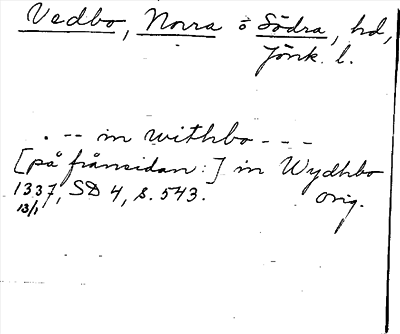 Vedbo, Norra o Södra, hd,
Jönk. l.
. -- in withbo - - -
[på frånsidan:] in Wydhbo
1337, SD 4, s. 543. orig.
13/1